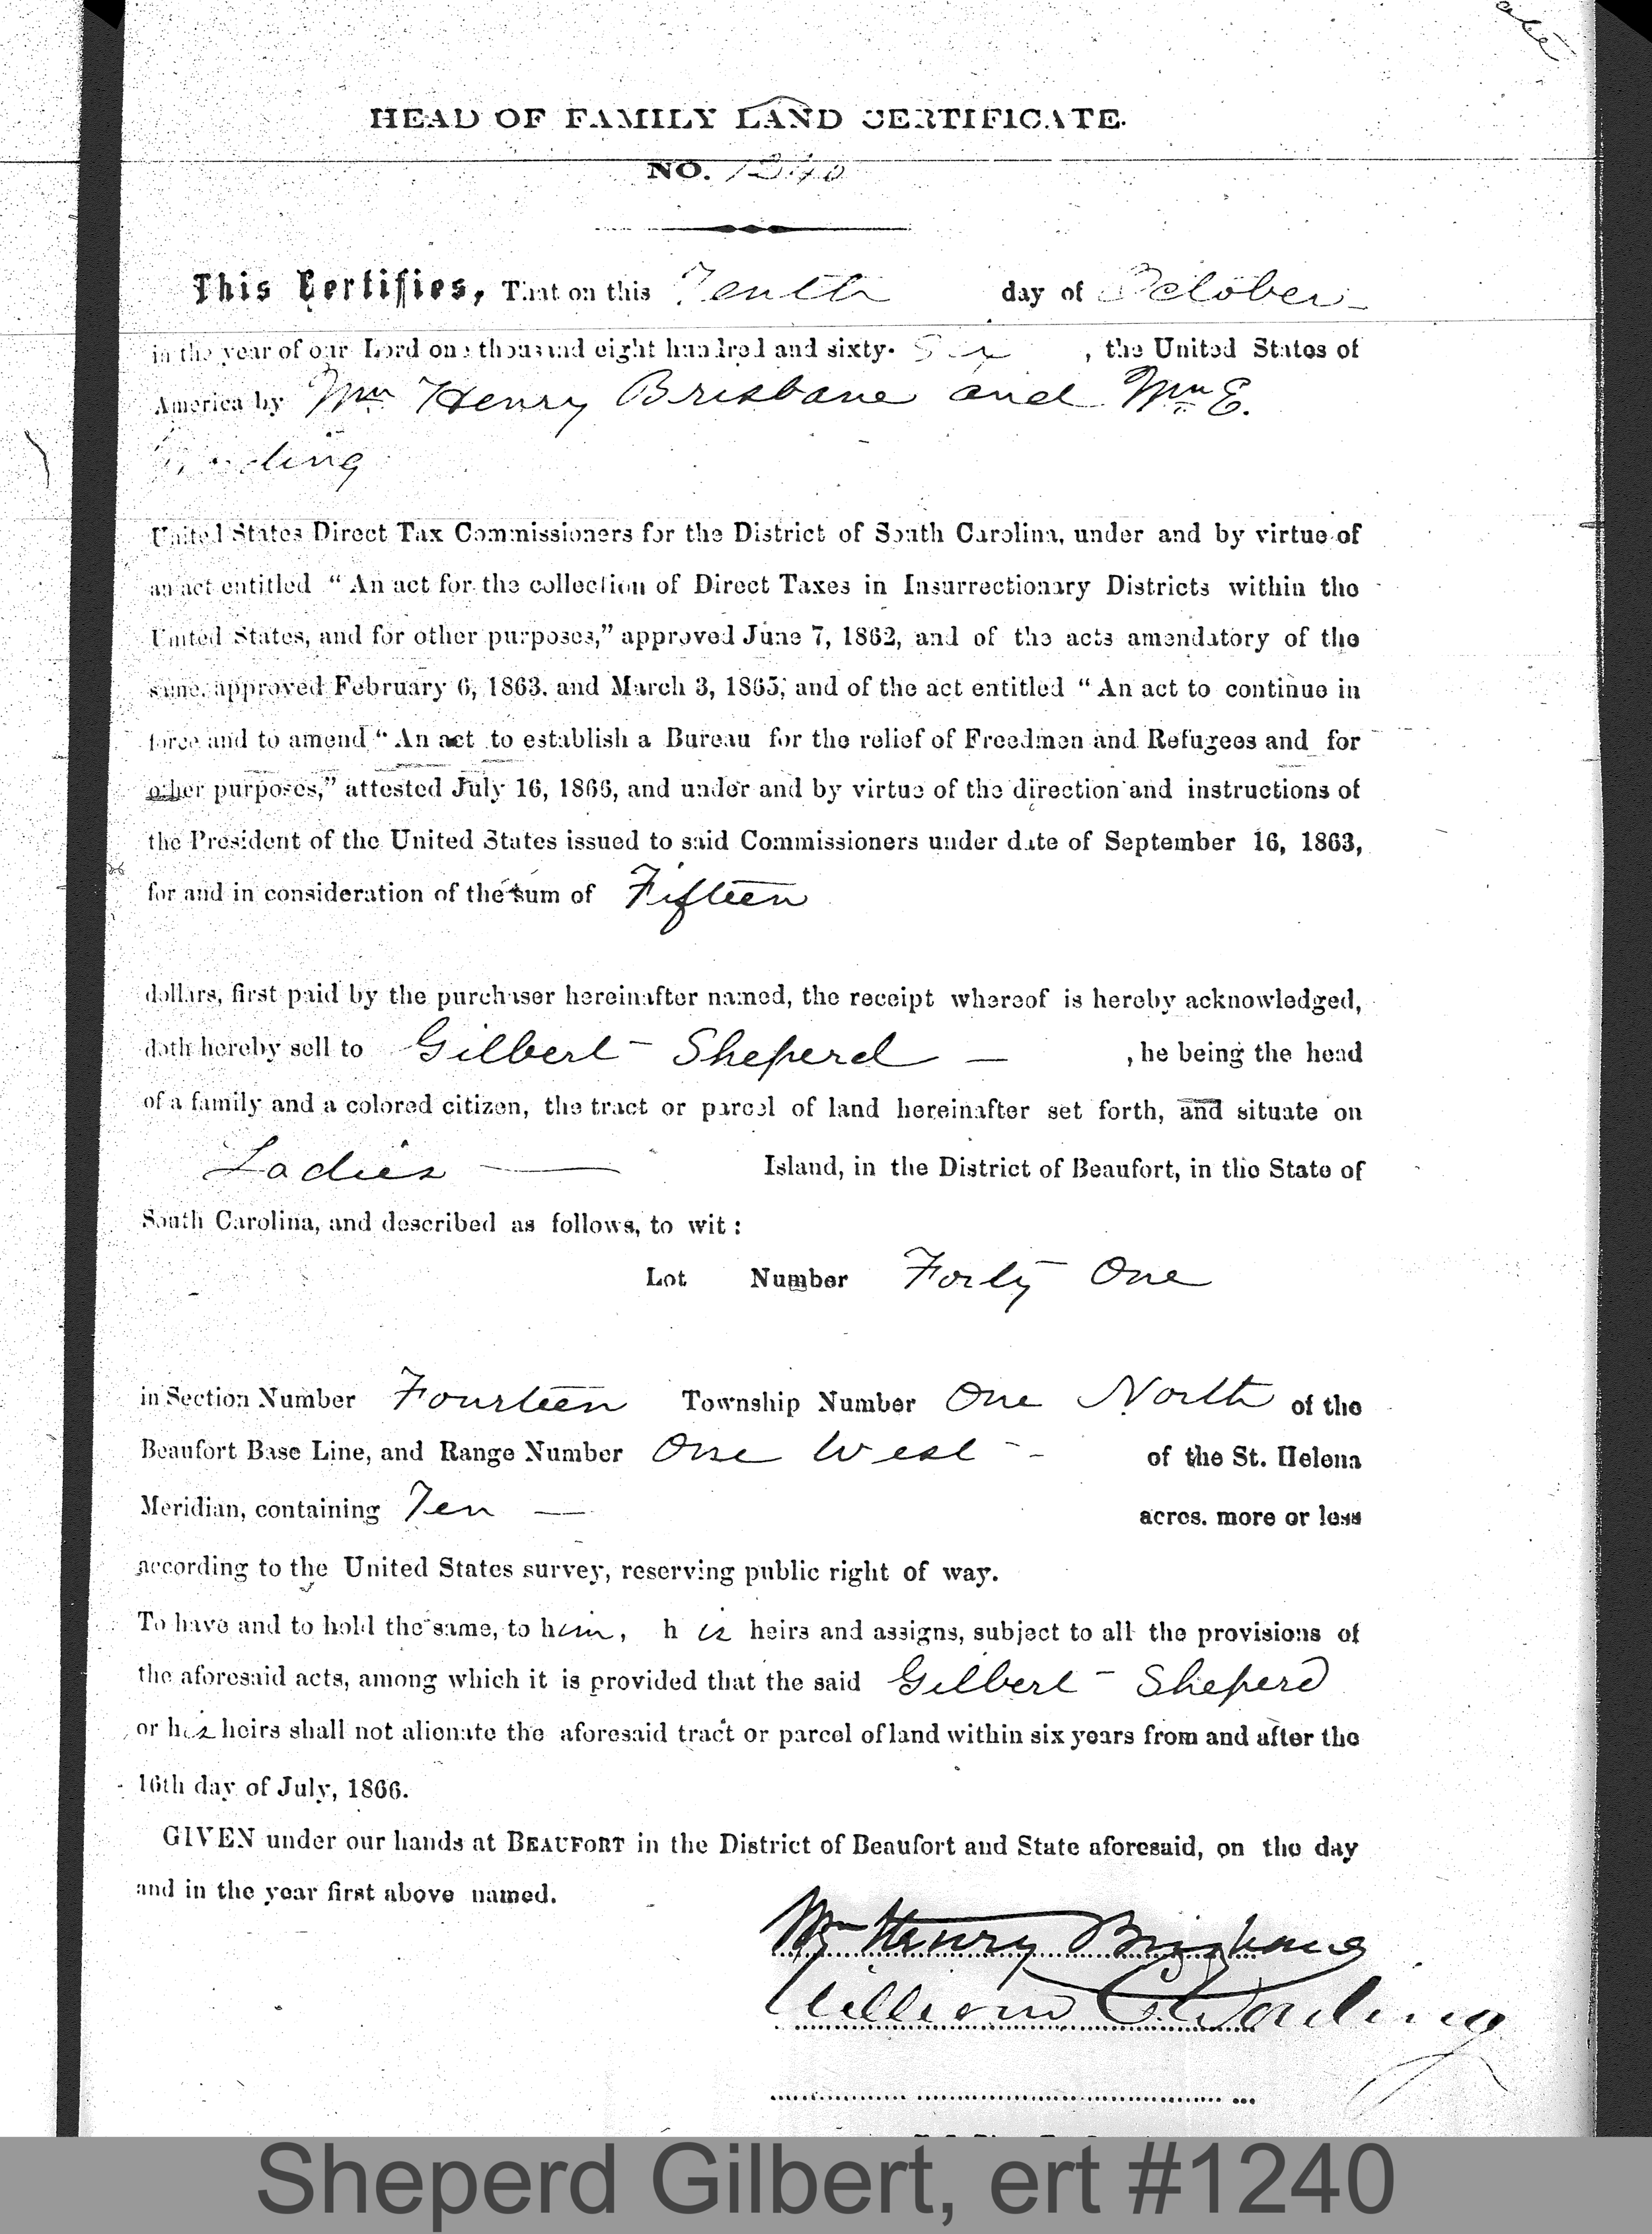 HEAD OF FAMILY LAND CERTIFICATE.
NO. 1240
This Certifies, That on this Tenth day of October
in the year of our Lord one thousand eight hundred and sixty- Six , the United States of
America by Wm Henry Brisbane and Wm E.
Wording
United States Direct Tax Commissioners for the District of South Carolina, under and by virtue of
an act entitled "An act for the collection of Direct Taxes in Insurrectionary Districts within the
United States, and for other purposes," approved June 7, 1862, and of the acts amendatory of the
same, approved February 6, 1863, and March 3, 1865; and of the act entitled "An act to continue in
force and to amend "An act to establish a Bureau for the relief of Freedmen and Refugees and for
other purposes," attested July 16, 1866, and under and by virtue of the direction and instructions of
the President of the United States issued to said Commissioners under date of September 16, 1863,
for and in consideration of the sum of Fifteen
dollars, first paid by the purchaser hereinafter named, the receipt whereof is hereby acknowledged,
doth hereby sell to Gilbert Sheperd — , he being the head
of a family and a colored citizen, the tract or parcel of land hereinafter set forth, and situate on
Ladies — Island, in the District of Beaufort, in the State of
South Carolina, and described as follows, to wit:
Lot Number Forty One
in Section Number Fourteen Township Number One North of the
Beaufort Base Line, and Range Number One West - of the St. Helena
Meridian, containing Ten — acres. more or less
according to the United States survey, reserving public right of way.
To have and to hold the same, to him, his heirs and assigns, subject to all the provisions of
the aforesaid acts, among which it is provided that the said Gilbert Sheperd
or his heirs shall not alienate the aforesaid tract or parcel of land within six years from and after the
16th day of July, 1866.
GIVEN under our hands at BEAUFORT in the District of Beaufort and State aforesaid, on the day
and in the year first above named.
Wm Henry Brisbane
William E. Wording
Sheperd Gilbert, ert #1240